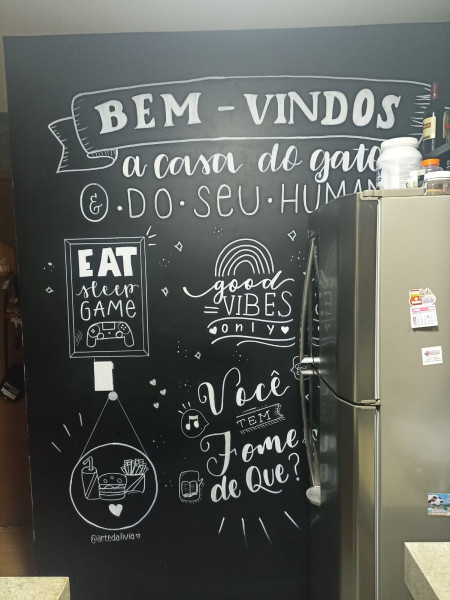 BEM-VINDOS
a casa do gato
& • DO • SEU • HUMAN
EAT
sleep
GAME
good
VIBES
only
Você
TEM
Fome
de Que?
@artedalivia